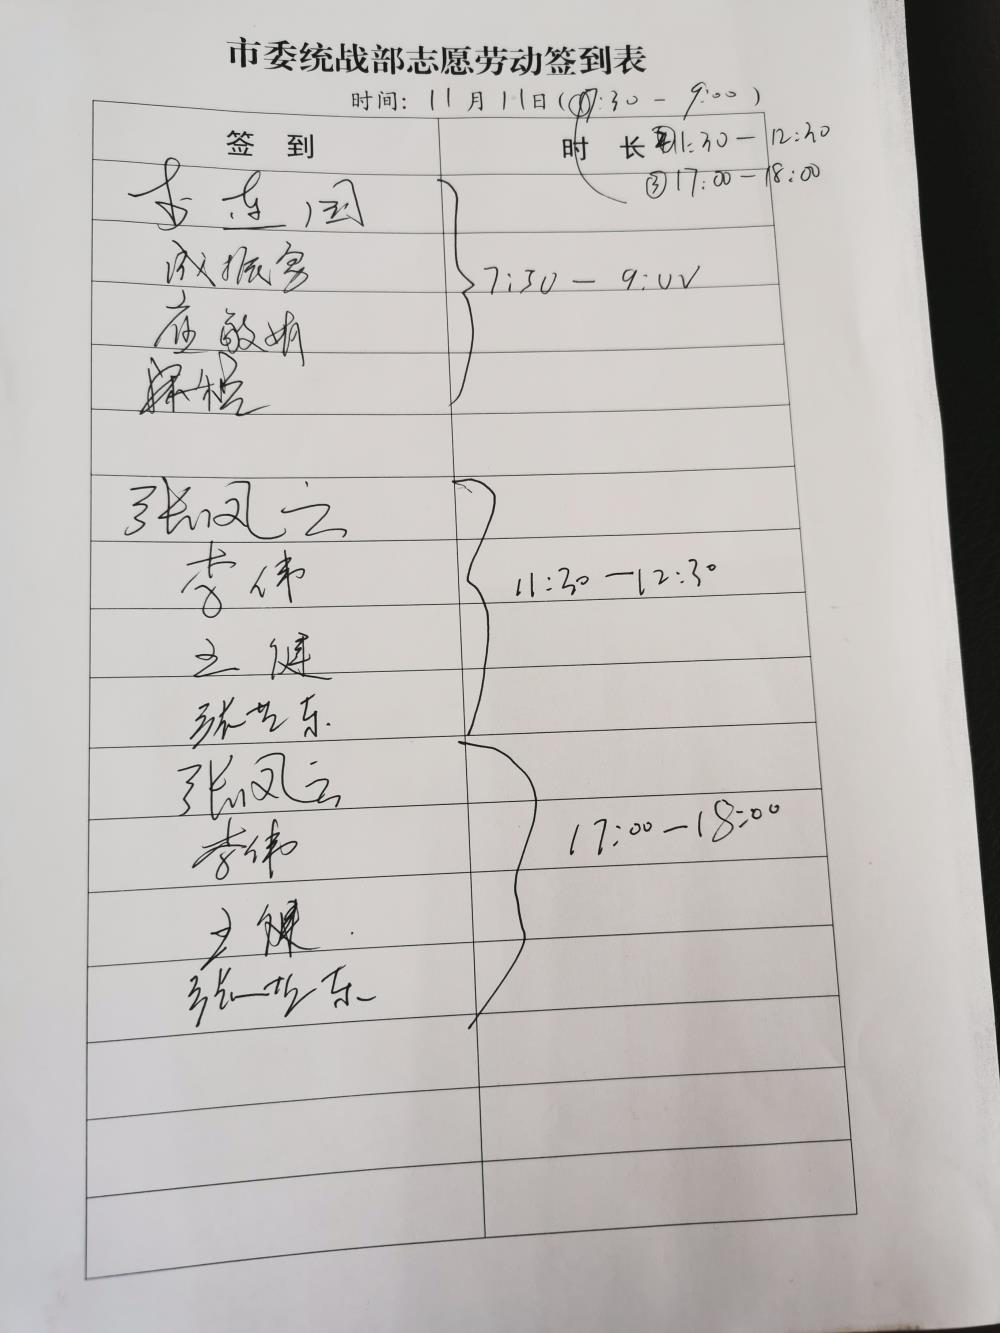 市委统战部志愿劳动签到表
时间: 11月11日(①7:30 - 9:00)
签 到
时 长
②11:30 - 12:30
③17:00 - 18:00
7:30 - 9:00
应敏娟
张凤云
李伟
11:30 - 12:30
王健
张艺东
张凤云
李伟
17:00 - 18:00
王健
张艺东